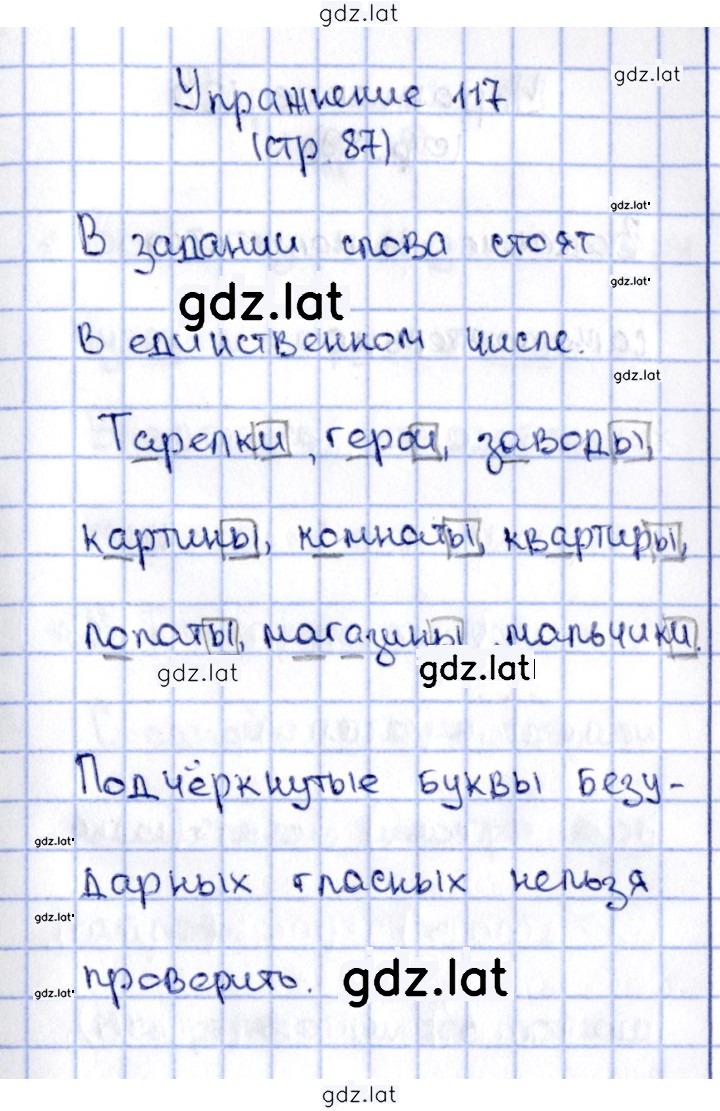 gdz.lat
gdz.lat
Упражнение 117
(стр. 87)
gdz.lat
В задании слова стоят
gdz.lat
gdz.lat
в единственном числе.
gdz.lat
Тарелки, герои, заводы,
картины, комнаты, квартиры,
лопаты, магазины мальчики.
gdz.lat
gdz.lat
Подчёркнутые буквы безу-
gdz.lat
дарных гласных нельзя
gdz.lat
проверить.
gdz.lat
gdz.lat
gdz.lat